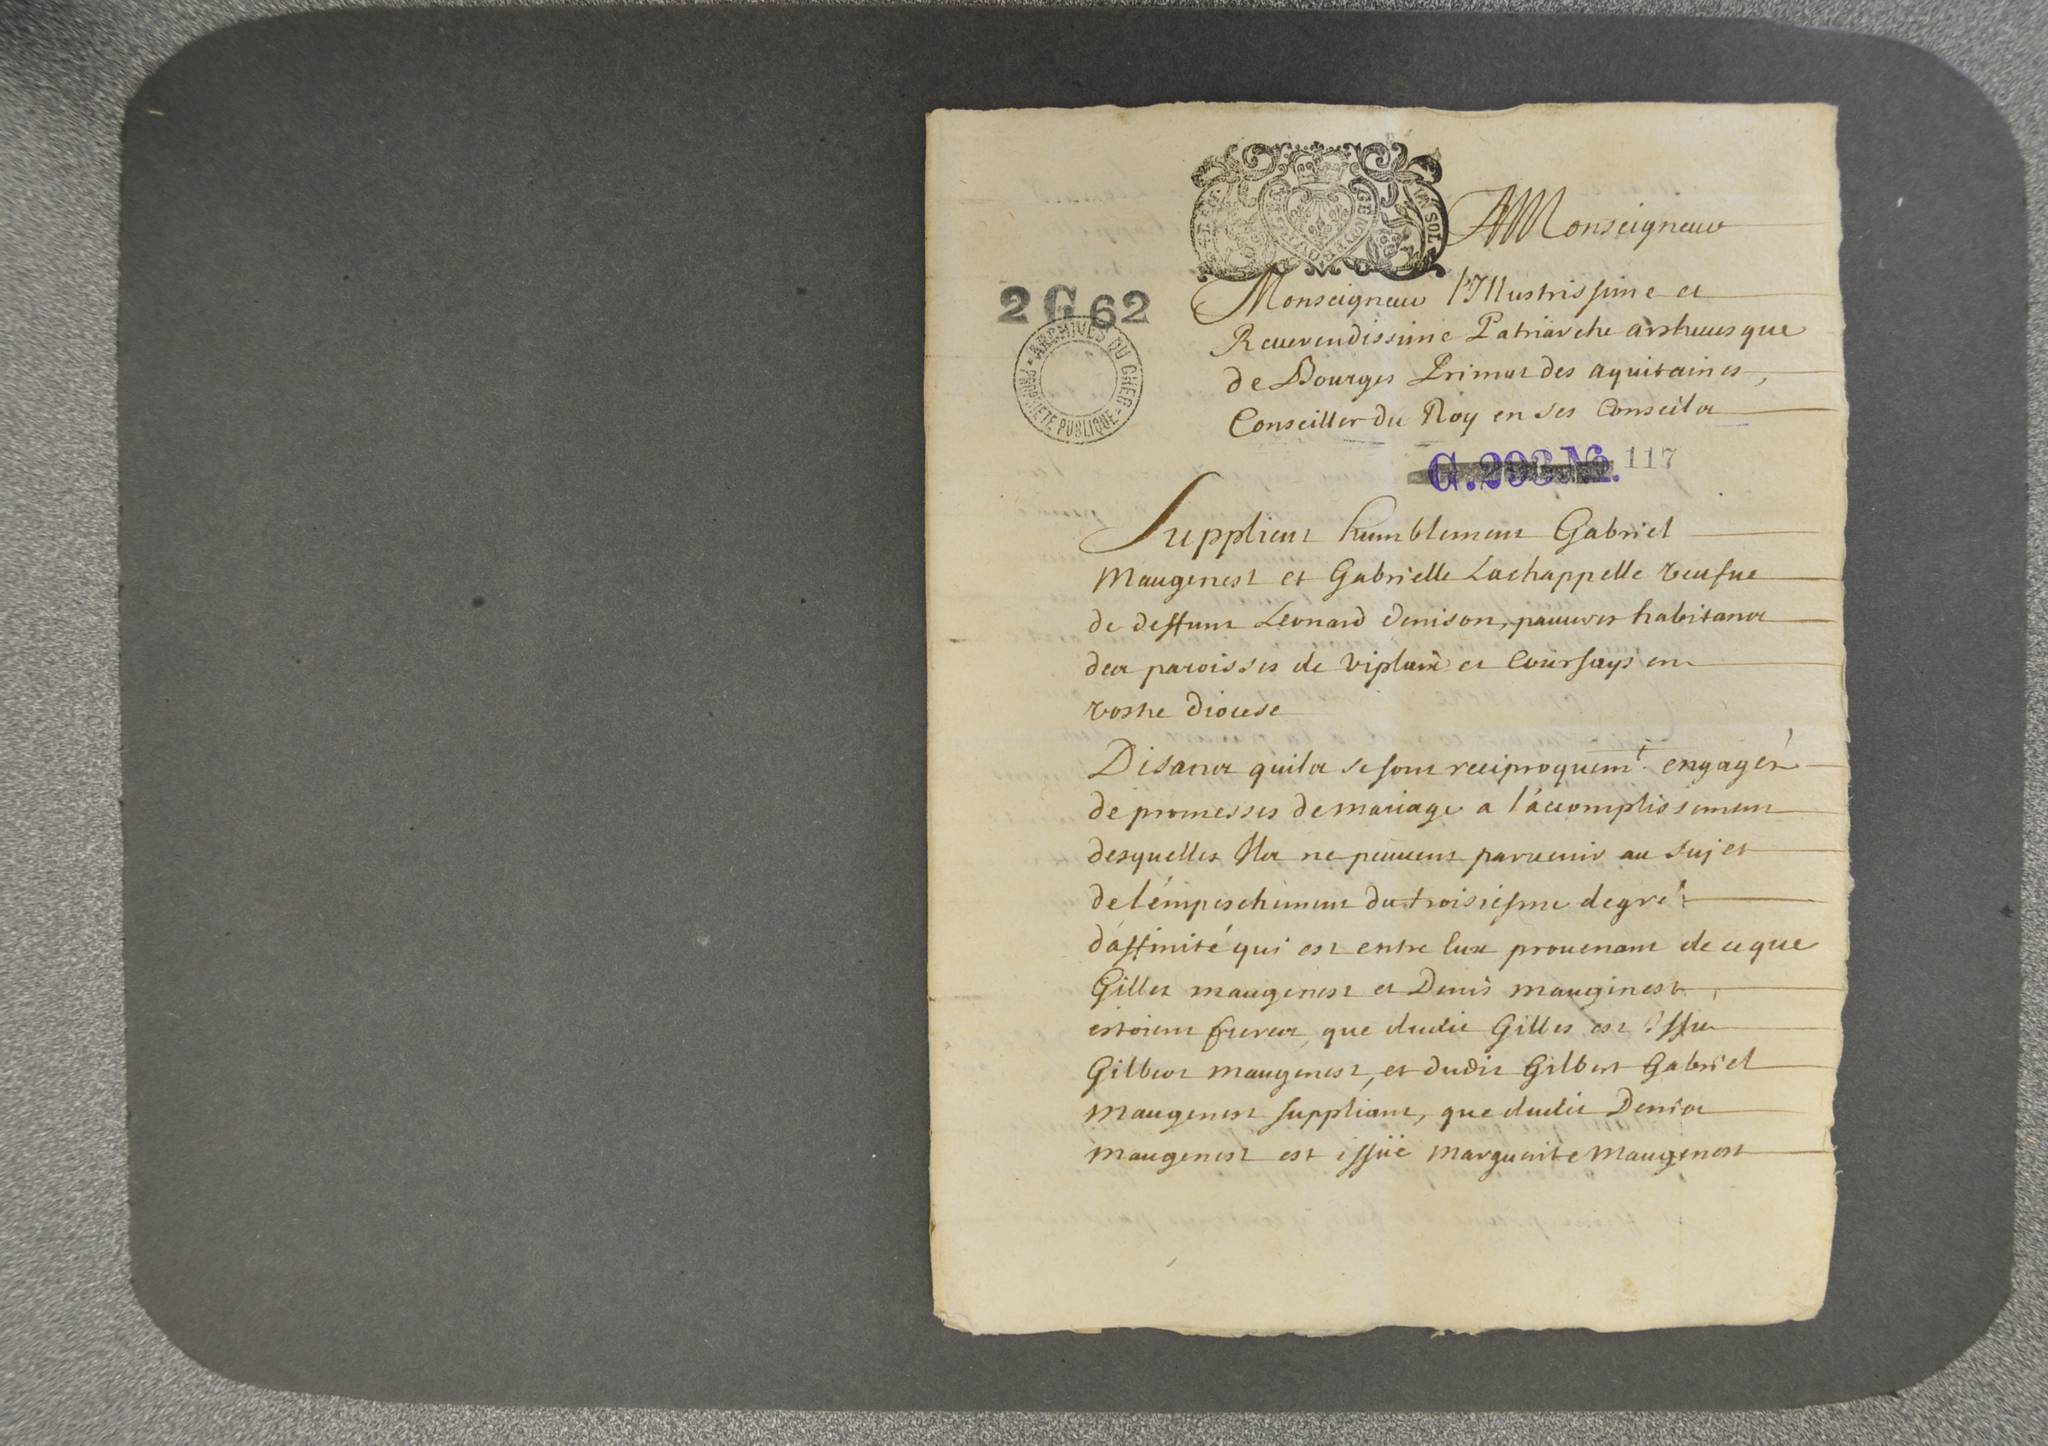 A Monseigneur
Monseigneur l'Illustrissime et
Reuerendissime Patriarche arsheuesque
de Bourges Primat des aquitaines,
Conseiller du Roy en ses Conseils
2 G 62
ARCHIVES DU CHER
PROPRIETE PUBLIQUE
G. 293 No. 117
Supplient humblement Gabriel
Maugenest et Gabrielle Lachappelle veufue
de deffunt Leonard Denison, pauures habitans
des paroisses de viplaix et Coursays en
vostre diocese
Disans quils se sont reciproquemt. engagés
de promesses de mariage a l'accomplissement
desquelles Ils ne peuuent paruenir au sujet
de l'émpeschement du troisiesme degré
d'affinité qui est entre Eux prouenant de ce que
Gilles maugenest et Denis mauginest,
estoient freres, que dudit Gilles est Issu
Gilbert maugenest, et dudit Gilbert Gabriel
maugenest suppliant, que dudit Denis
maugenest est issüe marguerite Maugenest